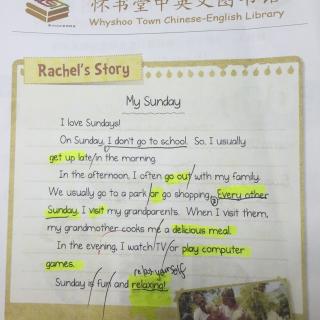 怀书堂中英文图书馆
Whyshoo Town Chinese-English Library
Rachel's Story
My Sunday
I love Sundays!
On Sunday, I don't go to school. So, I usually
get up late in the morning.
In the afternoon, I often go out with my family.
We usually go to a park or go shopping. Every other
Sunday, I visit my grandparents. When I visit them,
my grandmother cooks me a delicious meal.
In the evening, I watch TV or play computer
games.
relax yourself
Sunday is fun and relaxing!